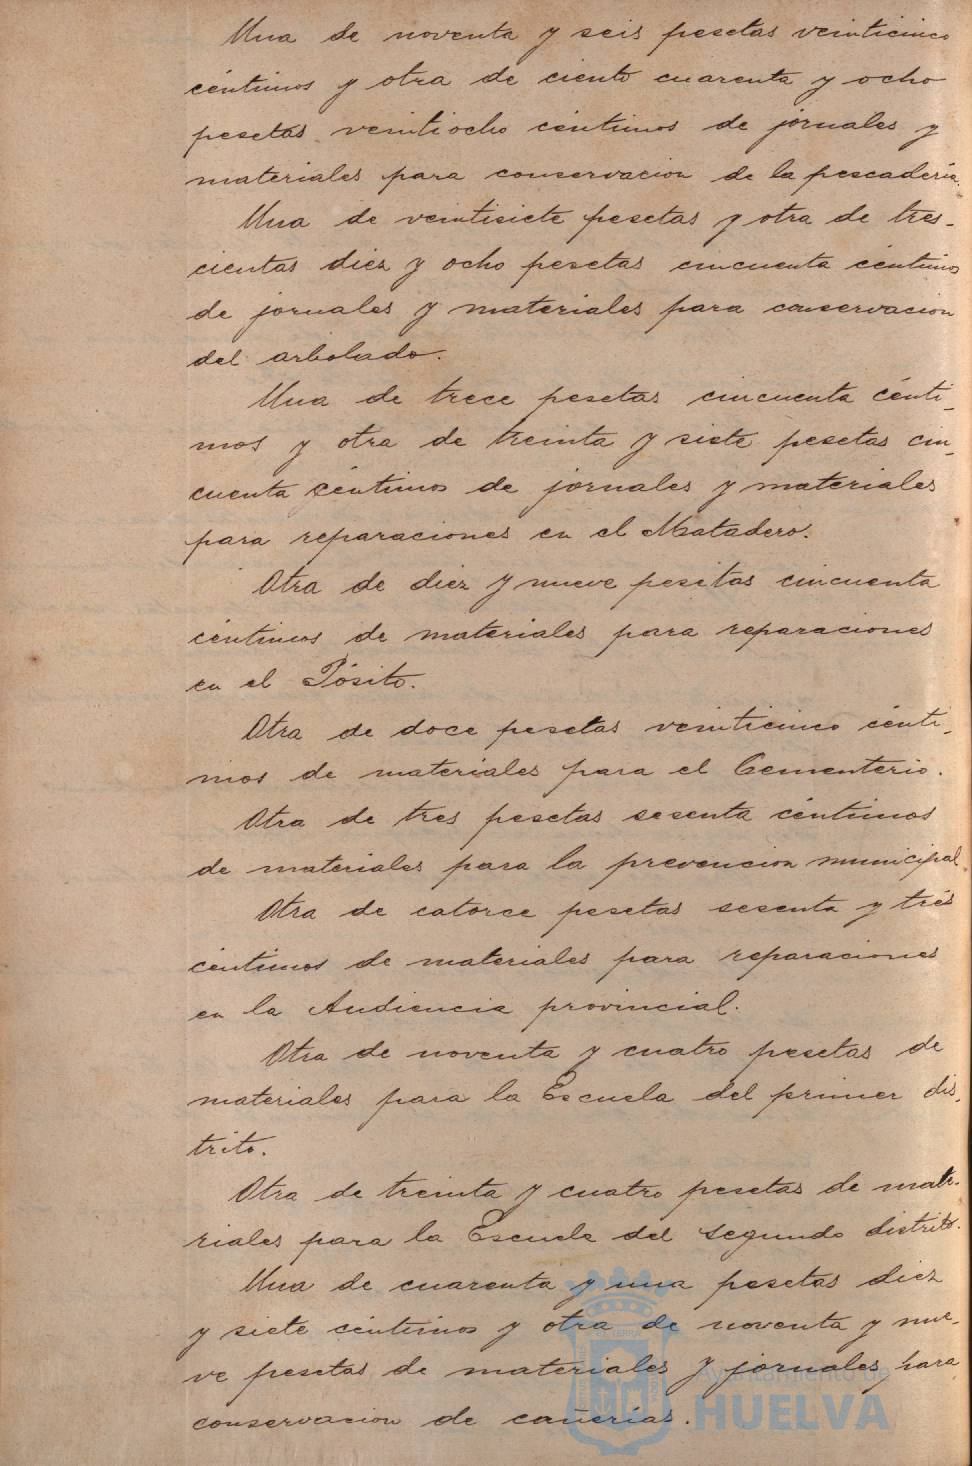 Una de noventa y seis pesetas veinticinco
céntimos y otra de ciento cuarenta y ocho
pesetas veintiocho céntimos de jornales y
materiales para conservacion de la pescadería.
Una de veintisiete pesetas y otra de tres-
cientas diez y ocho pesetas cincuenta céntimos
de jornales y materiales para conservacion
del arbolado.
Una de trece pesetas cincuenta cénti-
mos y otra de treinta y siete pesetas cin-
cuenta céntimos de jornales y materiales
para reparaciones en el Matadero.
Otra de diez y nueve pesetas cincuenta
céntimos de materiales para reparaciones
en el Pósito.
Otra de doce pesetas veinticinco cénti-
mos de materiales para el Cementerio.
Otra de tres pesetas sesenta céntimos
de materiales para la prevencion municipal
Otra de catorce pesetas sesenta y trés
céntimos de materiales para reparaciones
en la Audiencia provincial.
Otra de noventa y cuatro pesetas de
materiales para la Escuela del primer dis-
trito.
Otra de treinta y cuatro pesetas de mate-
riales para la Escuela del segundo distrito.
Una de cuarenta y una pesetas diez
y siete céntimos y otra de noventa y nue-
ve pesetas de materiales y jornales para
conservacion de cañerías.
Ayuntamiento de
HUELVA